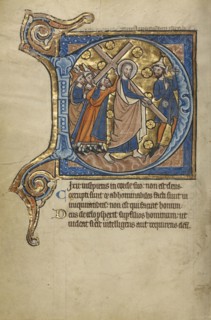 Dixit insipiens in corde suo: non est deus.
Corrupti sunt et abhominabiles facti sunt in
iniquitatibus: non est qui faciat bonum.
Deus de celo prospexit super filios hominum: ut
videat si est intelligens aut requirens deum.